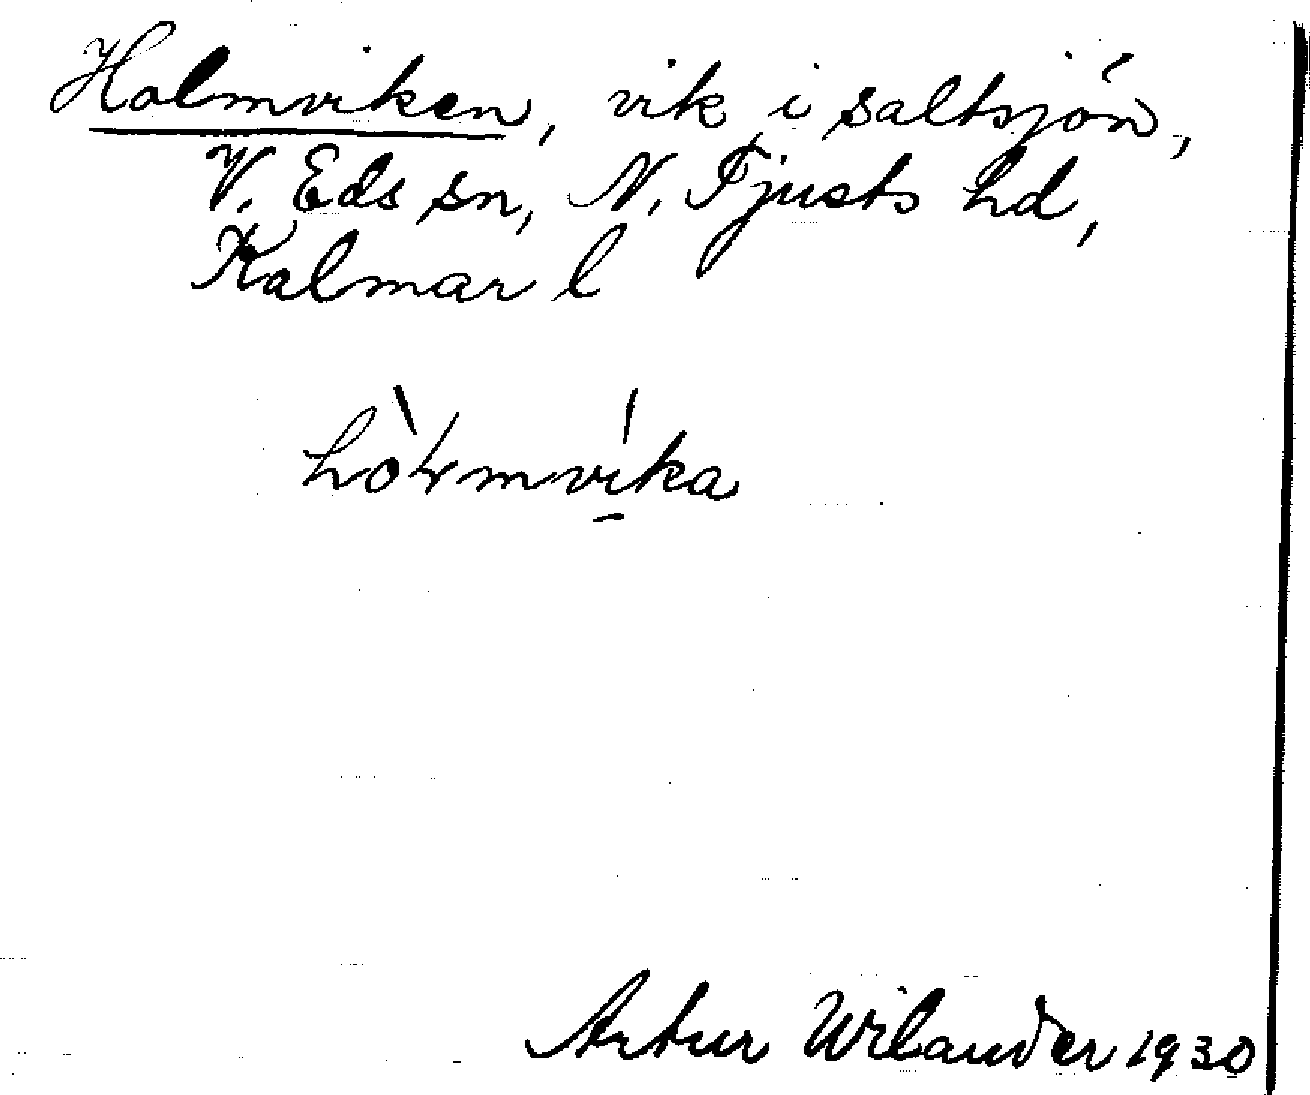 Holmviken, vik i saltsjön,
V. Eds sn, N. Tjusts hd,
Kalmar l
Artur Wilander 1930